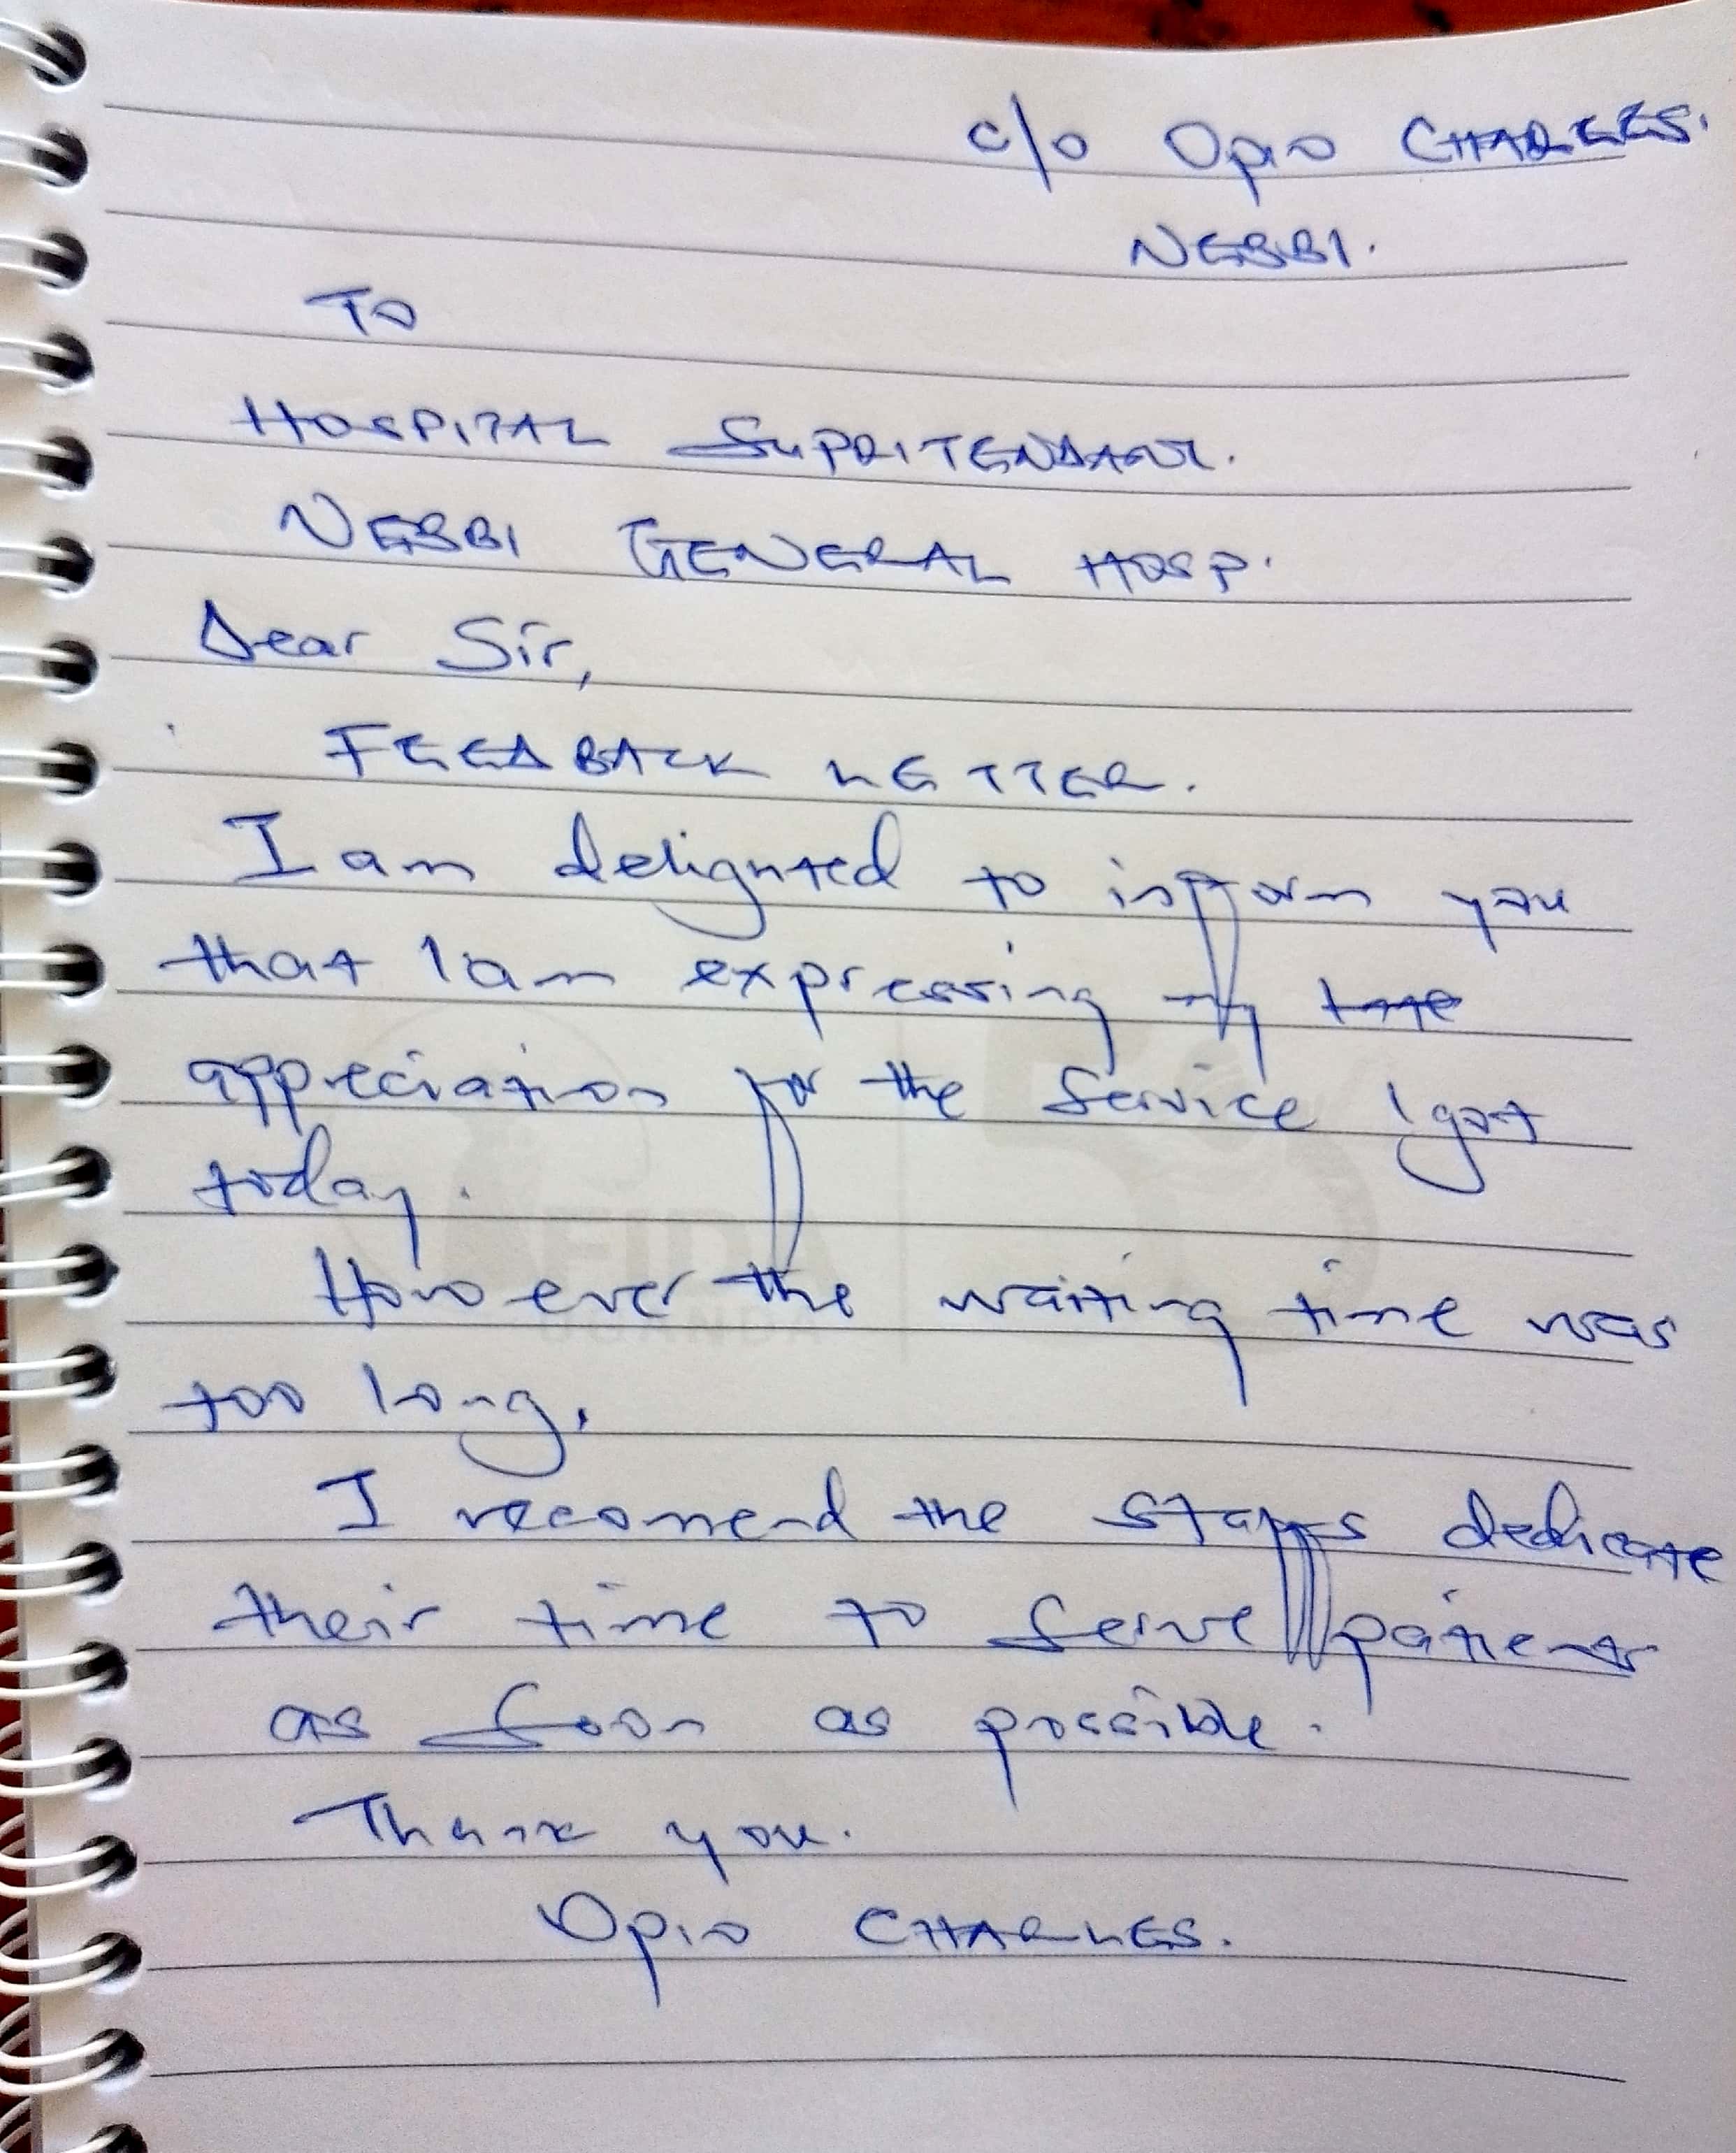 c/o Opio CHARLES.
NEBBI.
To
HOSPITAL SUPRITENDANT.
NEBBI GENERAL HOSP.
Dear Sir,
FEEDBACK LETTER.
I am delighted to inform you
that I am expressing my
appreciation for the service I got
today.
However the waiting time was
too long.
I recomend the staffs dedicate
their time to serve patients
as soon as possible.
Thank you.
Opio CHARLES.
FIDA
UGANDA